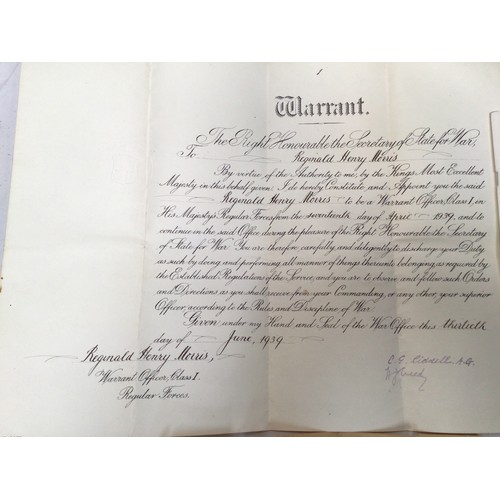 1
Warrant.
The Right Honourable the Secretary of State for War,
To Reginald Henry Morris
By virtue of the Authority to me, by the Kings Most Excellent
Majesty in this behalf given I do hereby Constitute and Appoint you the said
Reginald Henry Morris to be a Warrant Officer, Class I, in
His Majesty's Regular Forces from the seventeenth day of April 1939, and to
continue in the said Office during the pleasure of the Right Honourable the Secretary
of State for War. You are therefore carefully and diligently to discharge your Duty
as such by doing and performing all manner of things thereunto belonging, as required by
the Established Regulations of the Service, and you are to observe and follow such Orders
and Directions as you shall receive from your Commanding, or any other, your superior
Officer, according to the Rules and Discipline of War.
Given under my Hand and Seal of the War Office this thirtieth
day of June, 1939.
Reginald Henry Morris,
Warrant Officer, Class I.
Regular Forces.